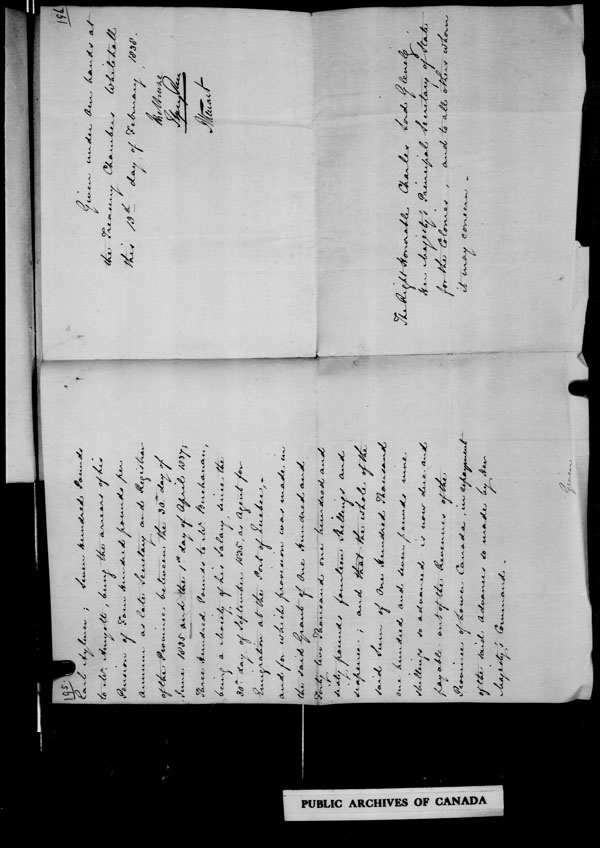 195.
Earl Aylmer; Seven hundred Pounds
to Mr. Amyott, being the arrears of his
Pension of Four hundred pounds per
annum as late Secretary and Registrar
of the Province between the 30th day of
June 1835 and the 1st day of April 1837;
Three hundred Pounds to Mr. Buchanan,
being a moiety of his Salary since the
30th day of September 1835 as Agent for
Emigration at the Port of Quebec;
and for which provision was made in
the said Grant of One hundred and
Forty two Thousand one hundred and
sixty pounds fourteen Shillings and
sixpence; and that the whole of the
said Sum of One hundred Thousand
one hundred and seven pounds nine
shillings so advanced is now due and
payable out of the Revenues of the
Province of Lower Canada, in repayment
of the said advances so made by Her
Majesty's Command.
Given
196
Given under our hands at
the Treasury Chambers Whitehall
this 13th day of February 1838.
Melbourne
Stewart
The Right Honorable Charles Lord Glenelg
Her Majesty's Principal Secretary of State
for the Colonies, and to all others whom
it may concern.
PUBLIC ARCHIVES OF CANADA